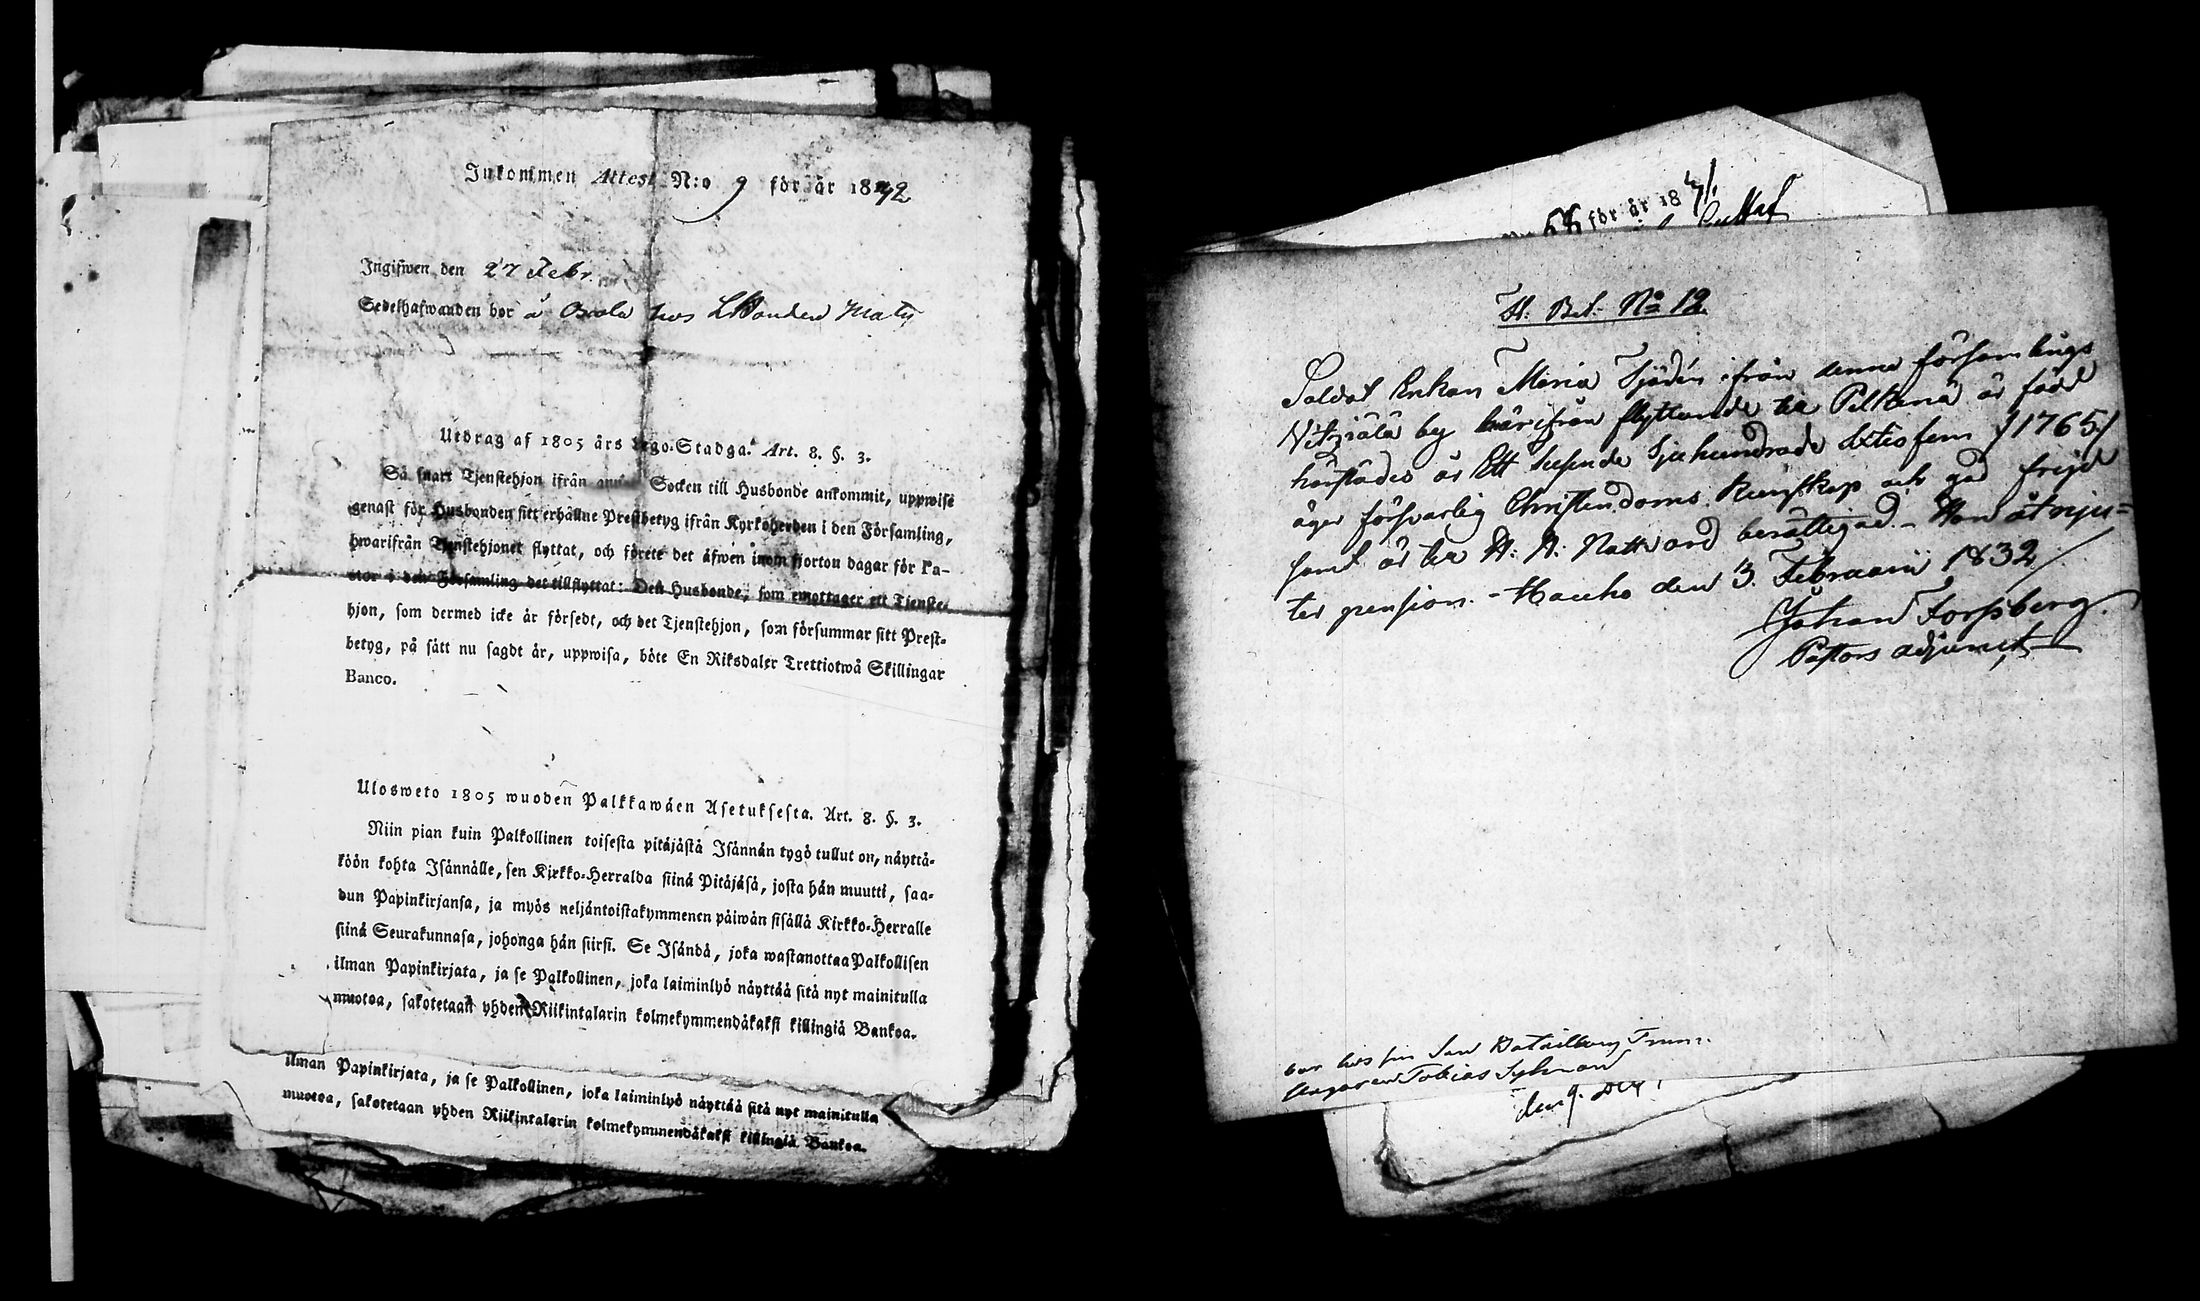 Inkommen Attest N:o 9 för år 1842
Ingifwen den 27 Febr.
Sedelhafwanden bor å hos
Utdrag af 1805 års Lego-Stadga. Art. 8. §. 3.
Så snart Tjenstehjon ifrån annan Socken till Husbonde ankommit, uppwise
genast för Husbonden sitt erhållne Prestbetyg ifrån Kyrkoherden i den Församling,
hwarifrån Tjenstehjonet flyttat, och förete det åfwen inom fjorton dagar för Pa-
stor i den Församling det tillflyttat: Den Husbonde, som emottager ett Tjenste-
hjon, som dermed icke år försedt, och det Tjenstehjon, som försummar sitt Prest-
betyg, på sått nu sagdt år, uppwisa, böte En Riksdaler Trettiotwå Skillingar
Banco.
Ulosweto 1805 wuoden Palkkawåen Asetuksesta. Art. 8. §. 3.
Niin pian kuin Palkollinen toisesta pitåjåstå Isånnån tygö tullut on, nåyttå-
köön kohta Isånnålle, sen Kirkko-Herralda siinå Pitåjåså, josta hån muutti, saa-
dun Papinkirjansa, ja myös neljåntoistakymmenen påiwån sisållå Kirkko-Herralle
siinå Seurakunnasa, johonga hån siirsi. Se Isåndå, joka wastanottaa Palkollisen
ilman Papinkirjata, ja se Palkollinen, joka laiminlyö nåyttåå sitå nyt mainitulla
muotoa, sakotetaan yhden Riikintalarin kolmekymmendåkaksi killingiå Bankoa.
ilman Papinkirjata, ja se Palkollinen, joka laiminlyö nåyttåå sitå nyt mainitulla
muotoa, sakotetaan yhden Riikintalarin kolmekymmendåkaksi killingiå Bankoa.
för år 18
No 12
Soldat Enkan Maria Sjödén ifrån denne församlings
by härifrån flyttande till Pelkena är född
härstädes år Ett tusende Sjuhundrade Sextiofem /1765/
äger försvarlig Christendoms Kunskap och god frejd
samt är till H. H. Nattvard berättigad. - Hon åtnju=
ter pension. - Hauho den 3 Februarii 1832
Johan Forssberg.
Pastors adjunct
bor hos sin Son
Tobias